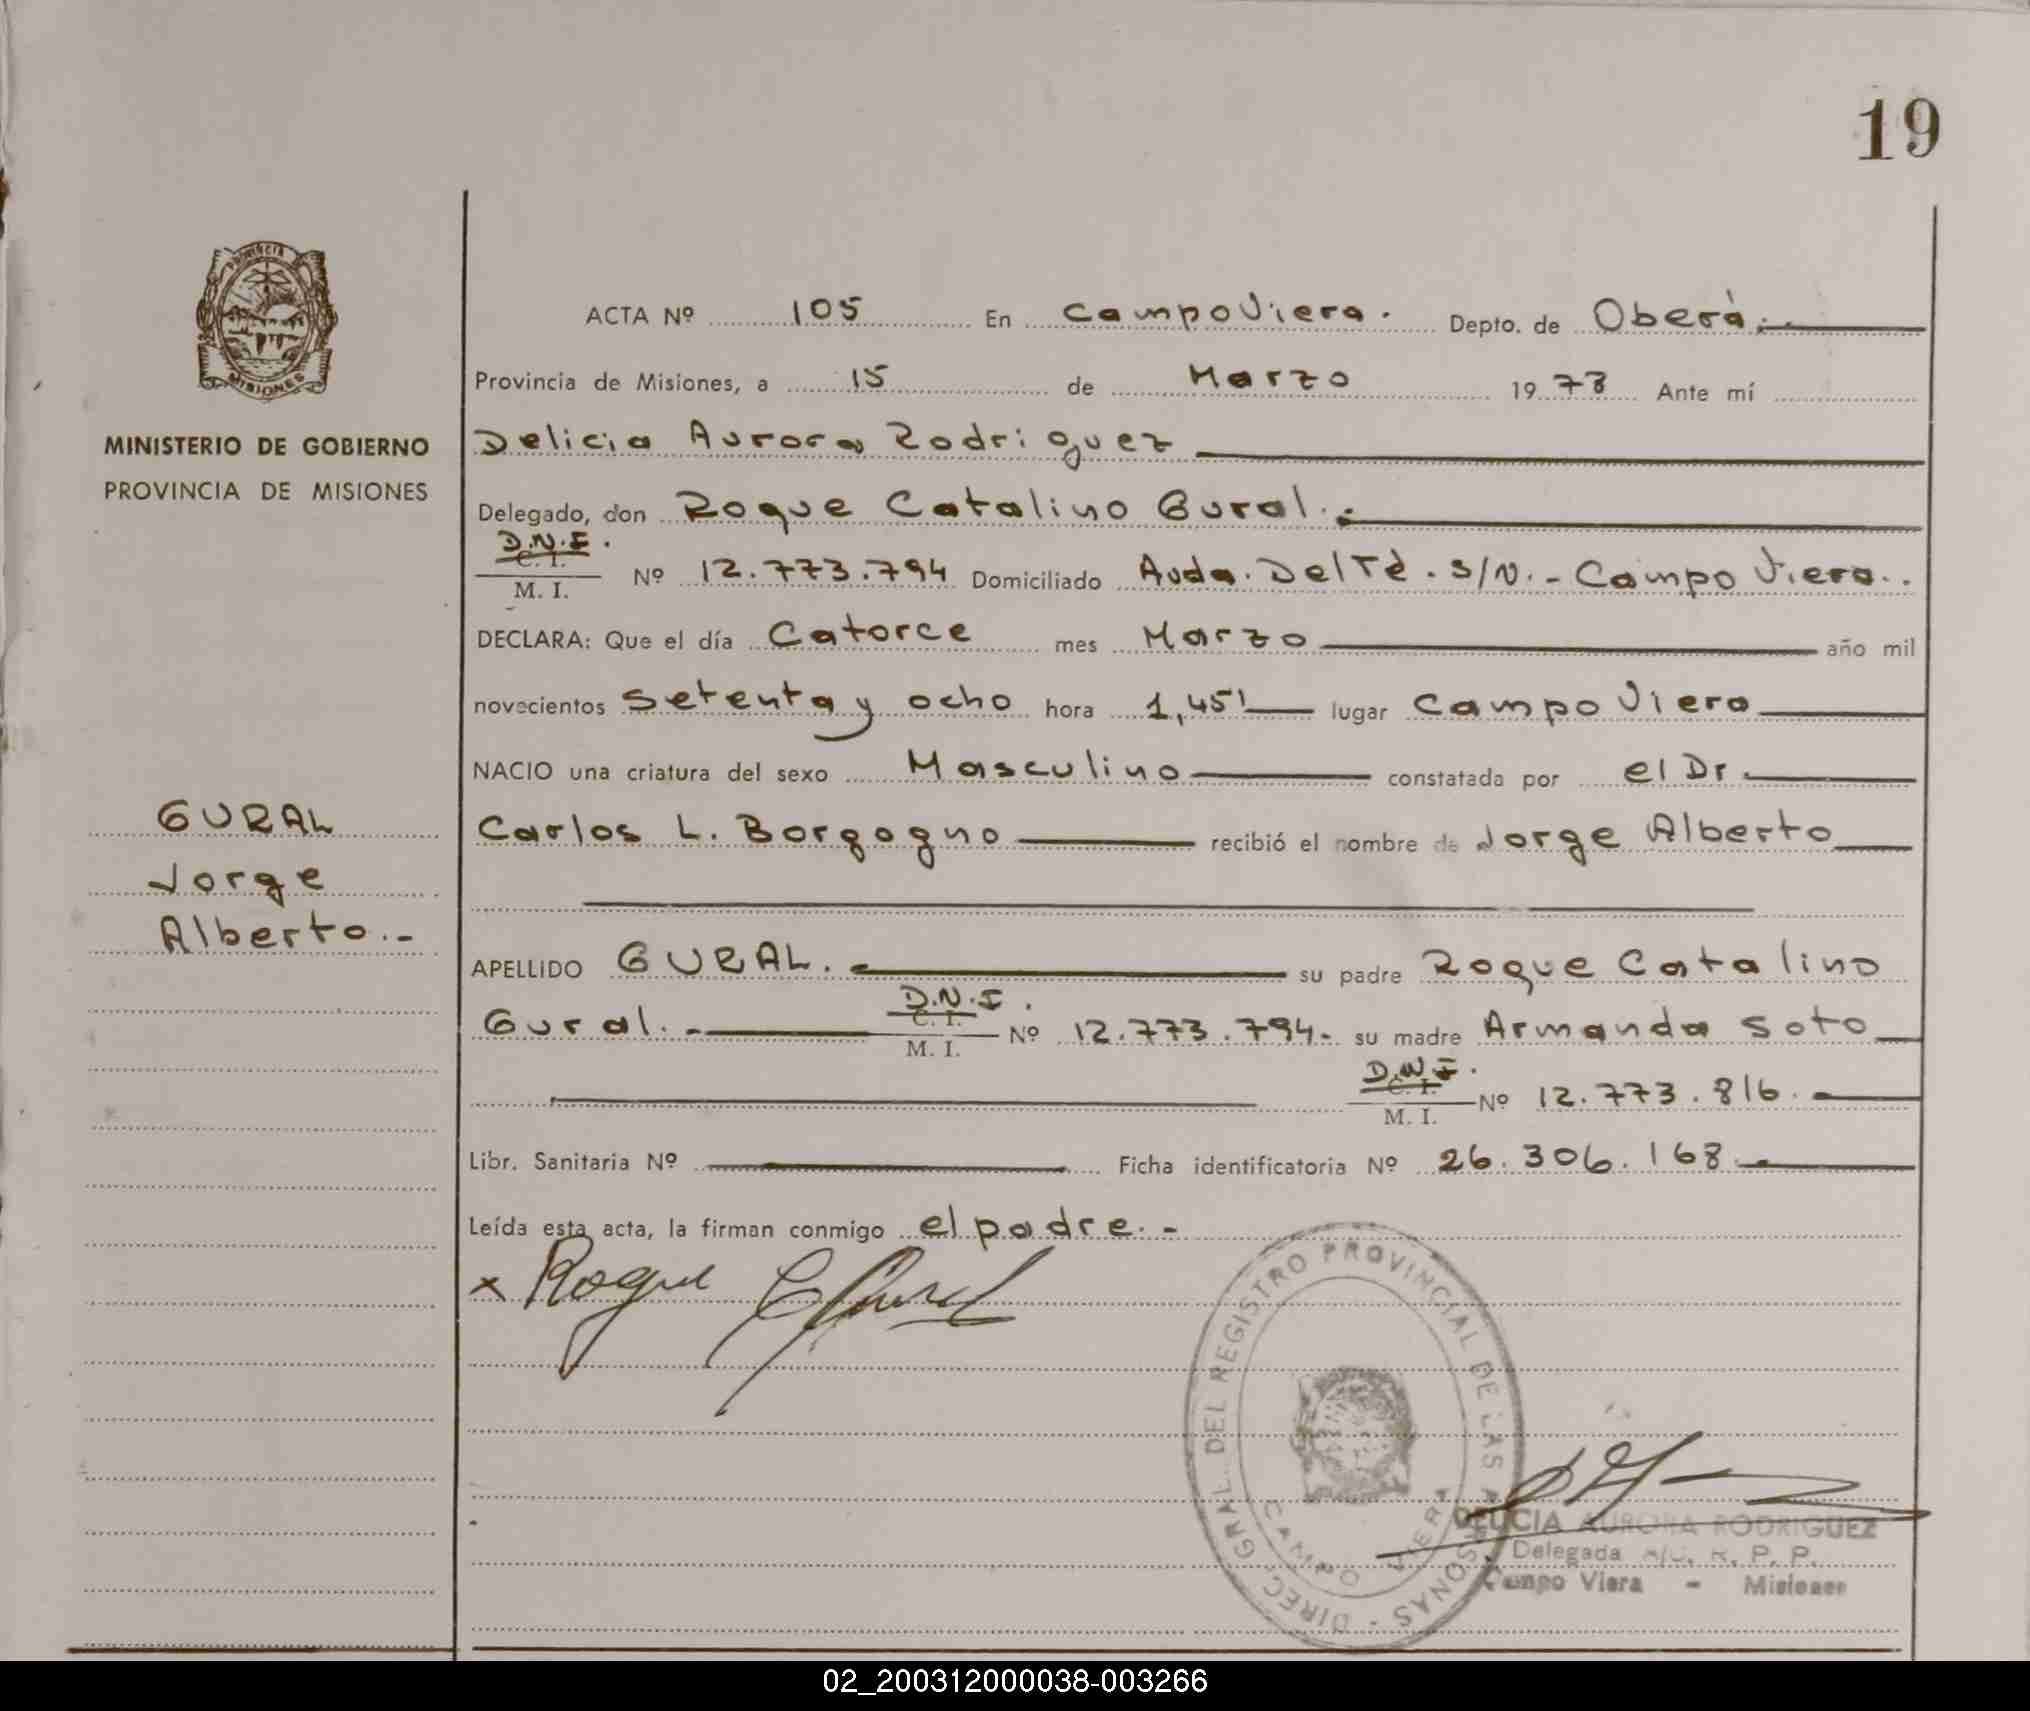 19
PROVINCIA
MISIONES
MINISTERIO DE GOBIERNO
PROVINCIA DE MISIONES
GURAL
Jorge
Alberto.-
ACTA Nº 105 En Campo Viera. Depto. de Oberá.
Provincia de Misiones, a 15 de Marzo 1978 Ante mí
Delicia Aurora Rodriguez
Delegado, don Roque Catalino Gural.
D.N.I.
C. I.
M. I. Nº 12.773.794 Domiciliado Avda. Del Té. S/N.- Campo Viera..
DECLARA: Que el día Catorce mes Marzo año mil
novecientos setenta y ocho hora 1,45' lugar Campo Viera
NACIO una criatura del sexo Masculino constatada por el Dr.
Carlos L. Borgogno recibió el nombre de Jorge Alberto
APELLIDO GURAL. su padre Roque Catalino
D.N.I.
C. I.
Gural.- M. I. Nº 12.773.794- su madre Armanda Soto
D.N.I.
C. I.
M. I. Nº 12.773.816.
Libr. Sanitaria Nº Ficha identificatoria Nº 26.306.168.
Leída esta acta, la firman conmigo el padre.-
x Roque C Gural
DIREC. GRAL. DEL REGISTRO PROVINCIAL DE LAS PERSONAS
CAMPO VIERA
DELICIA AURORA RODRIGUEZ
Delegada R. P. P.
Campo Viera - Misiones
02_200312000038-003266